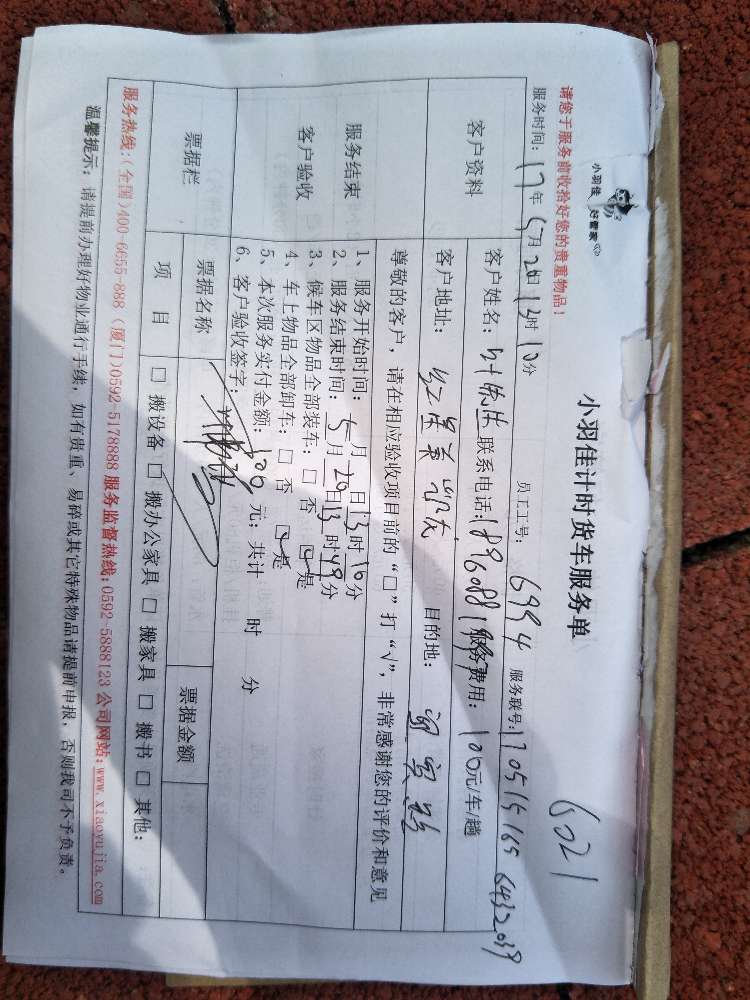 小羽佳 好管家
小羽佳计时货车服务单
6021
请您于服务前收拾好您的贵重物品！
服务时间：17年5月20日13时10分 员工工号：6994 服务联号：170515165 6432039
客户资料
客户姓名： 联系电话：1896088 服务费用：100元/车/趟
客户地址： 目的地：
尊敬的客户，请在相应验收项目前的“□”打“√”，非常感谢您的评价和意见
服务结束
客户验收
1、服务开始时间： 月 日13时10分
2、服务结束时间：5月20日13时49分
3、候车区物品全部装车：□ 否 ☑是
4、车上物品全部卸车：□ 否 ☑是
5、本次服务实付金额：100元；共计 时 分
6、客户验收签字：
票据栏
票据名称 票据金额
项 目 □ 搬设备 □ 搬办公家具 □ 搬家具 □ 搬书 □ 其他：
服务热线：(全国)400-6655-888 (厦门)0592-5178888 服务监督热线：0592-5888123 公司网站：www.xiaoyujia.com
温馨提示：请提前办理好物业通行手续，如有贵重、易碎或其它特殊物品请提前申报，否则我司不予负责。